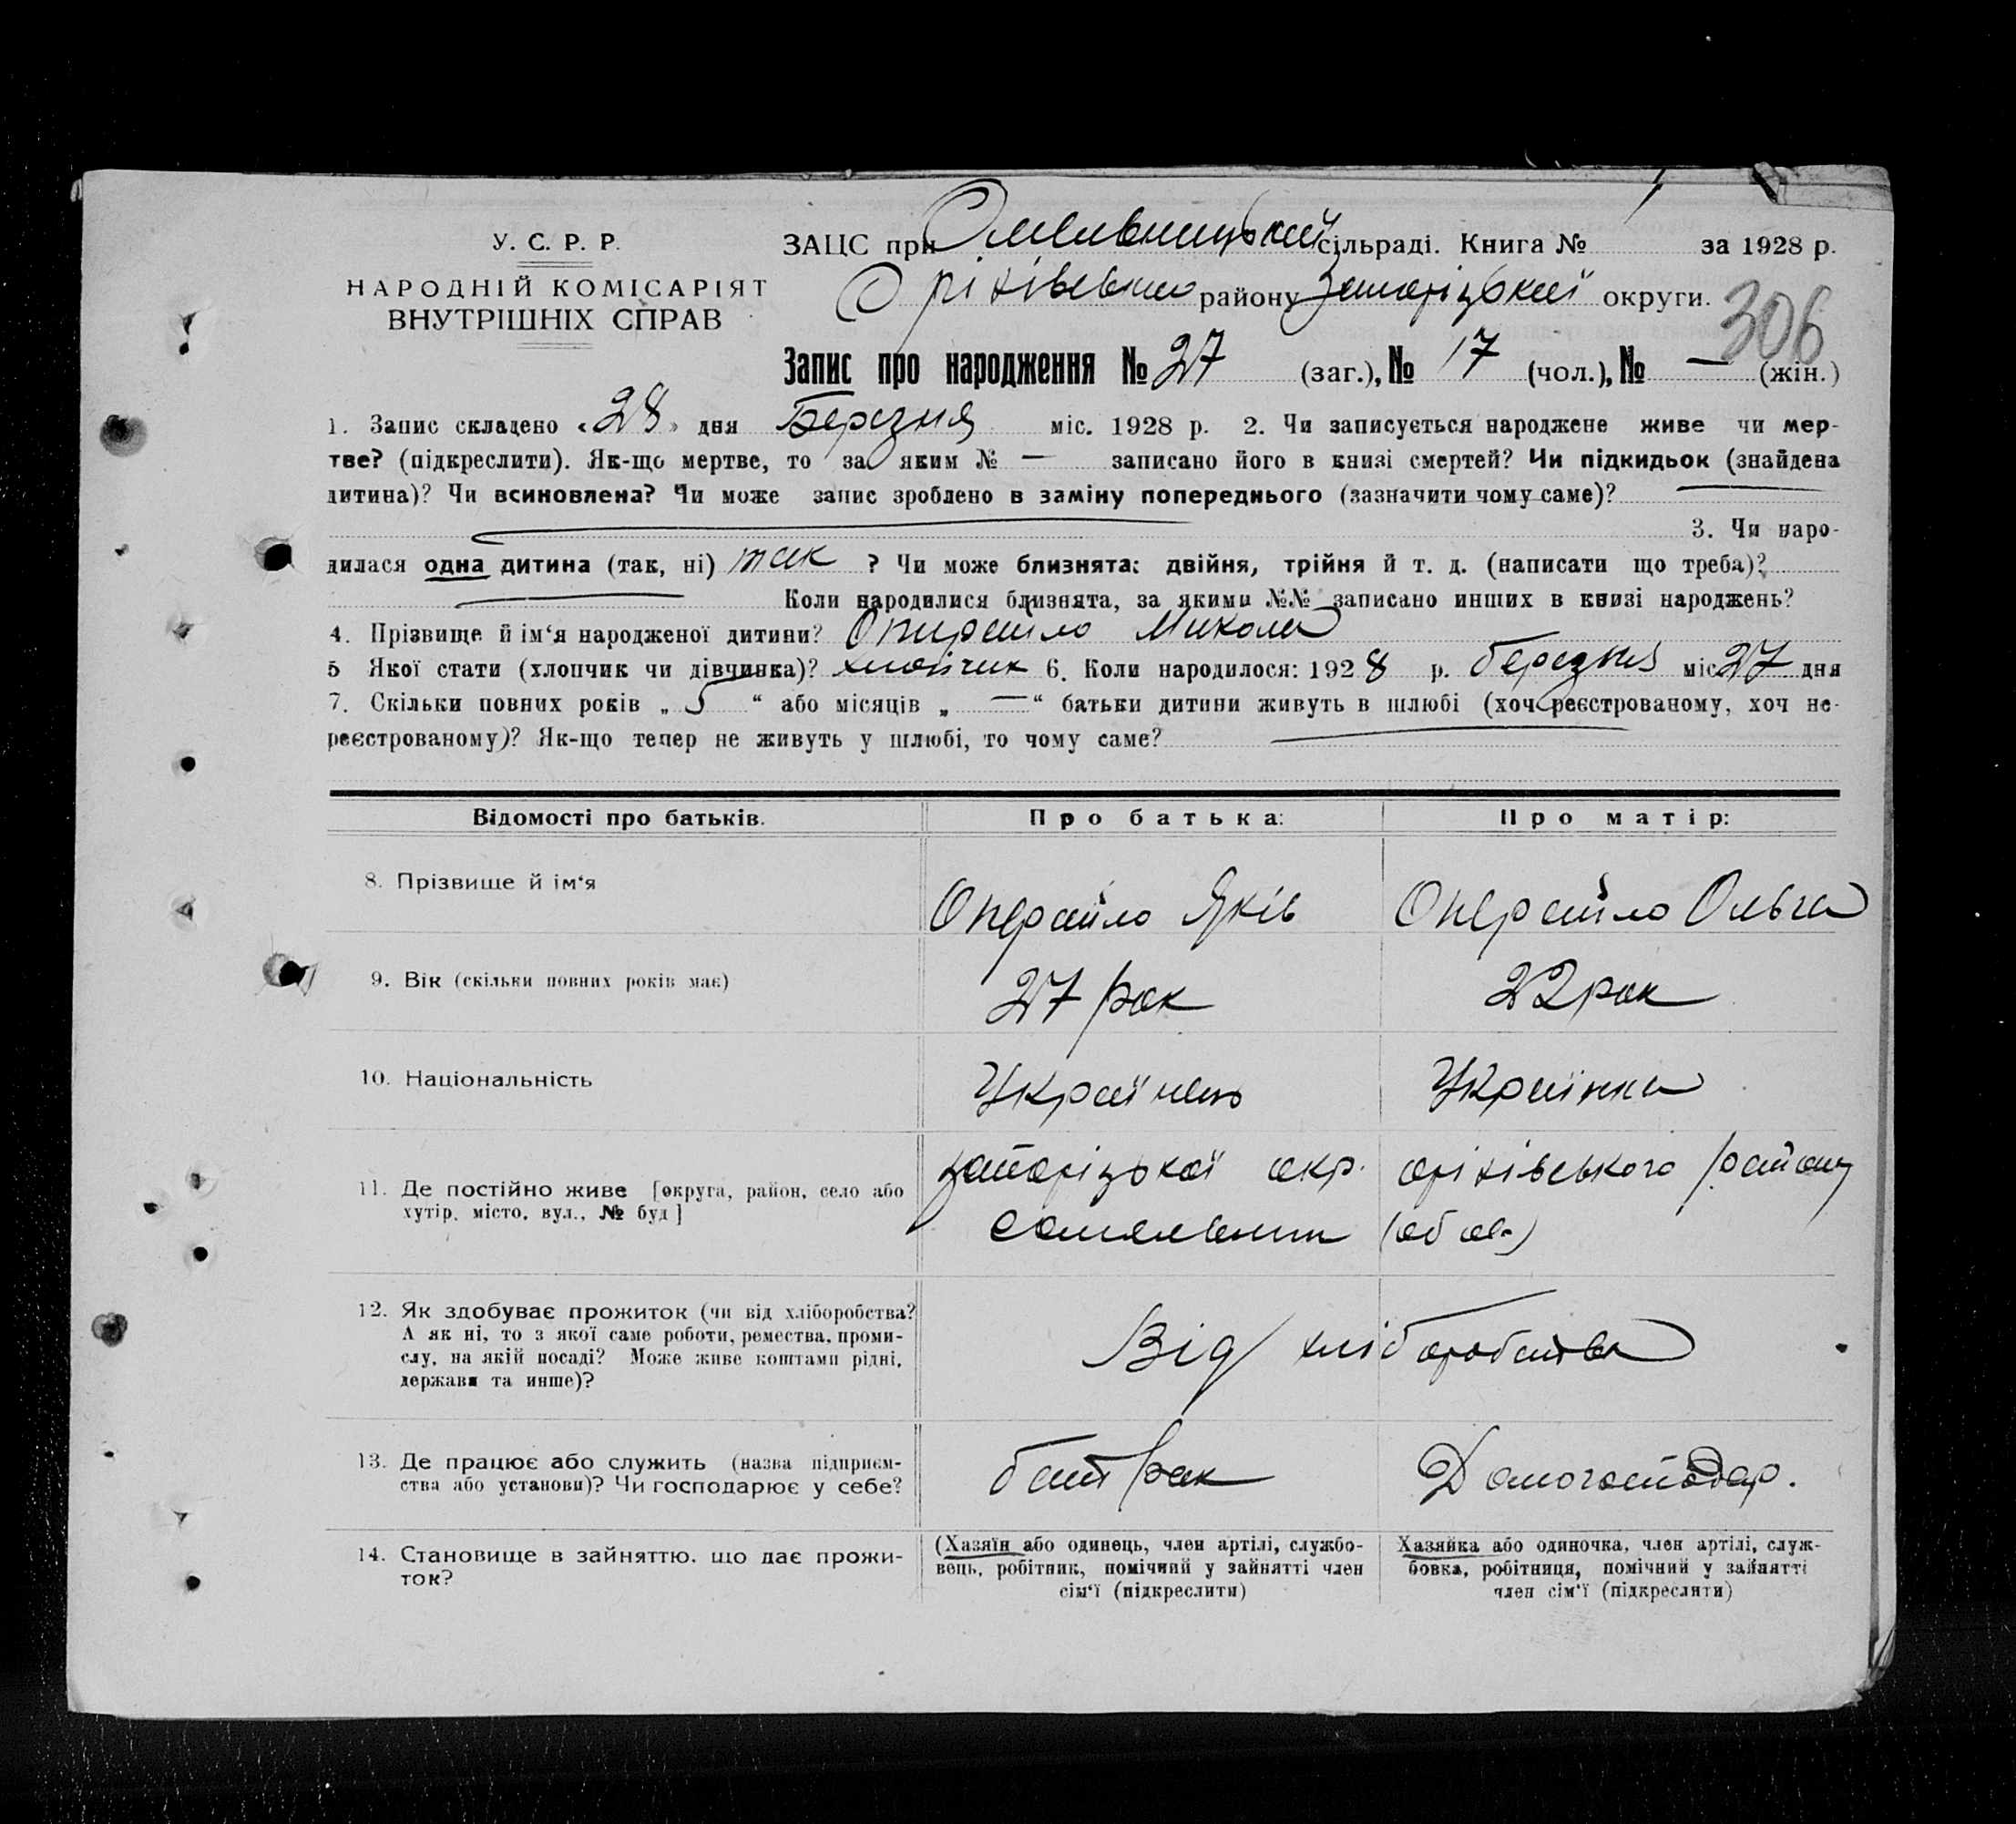 У. С. Р. Р.
НАРОДНІЙ КОМІСАРІЯТ
ВНУТРІШНІХ СПРАВ
ЗАЦС при Омельницький сільраді. Книга № за 1928 р.
Оріхівського району Запорізької округи.
306
Запис про народження № 27 (заг.), № 17 (чол.), № — (жін.)
1. Запис складено «28» дня Березня міс. 1928 р. 2. Чи записується народжене живе чи мер-
тве? (підкреслити). Як-що мертве, то за яким № — записано його в книзі смертей? Чи підкидьок (знайдена
дитина)? Чи всиновлена? Чи може запис зроблено в заміну попереднього (зазначити чому саме)?
3. Чи наро-
дилася одна дитина (так, ні) так ? Чи може близнята: двійня, трійня й т. д. (написати що треба)?
Коли народилися близнята, за якими №№ записано инших в книзі народжень?
4. Прізвище й ім‘я народженої дитини? Микола
5 Якої стати (хлопчик чи дівчинка)? хлопчик 6. Коли народилося: 1928 р. березня міс 27 дня
7. Скільки повних років „ 5 “ або місяців „ — “ батьки дитини живуть в шлюбі (хоч реєстрованому, хоч не-
реєстрованому)? Як-що тепер не живуть у шлюбі, то чому саме?
Відомості про батьків. Про батька: Про матір:
8. Прізвище й ім‘я Яків Ольга
9. Вік (скільки повних років має) 27 рок 22 рок
10. Національність Українець Українка
11. Де постійно живе [округа, район, село або
хутір, місто, вул., № буд]
запорізької окр. оріхівського району
12. Як здобуває прожиток (чи від хліборобства?
А як ні, то з якої саме роботи, ремества, проми-
слу, на якій посаді? Може живе коштами рідні,
держави та инше)?
Від хліборобства
13. Де працює або служить (назва підприєм-
ства або установи)? Чи господарює у себе?
батрак Домогосподар.
14. Становище в зайняттю, що дає прожи-
ток?
(Хазяїн або одинець, член артілі, службо-
вець, робітник, помічний у зайнятті член
сім‘ї (підкреслити)
Хазяйка або одиночка, член артілі, служ-
бовка, робітниця, помічний у зайнятті
член сім‘ї (підкреслити)